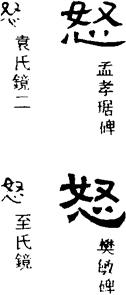 怒 孟孝琚碑
怒 袁氏鏡二
怒 樊敏碑
怒 至氏鏡